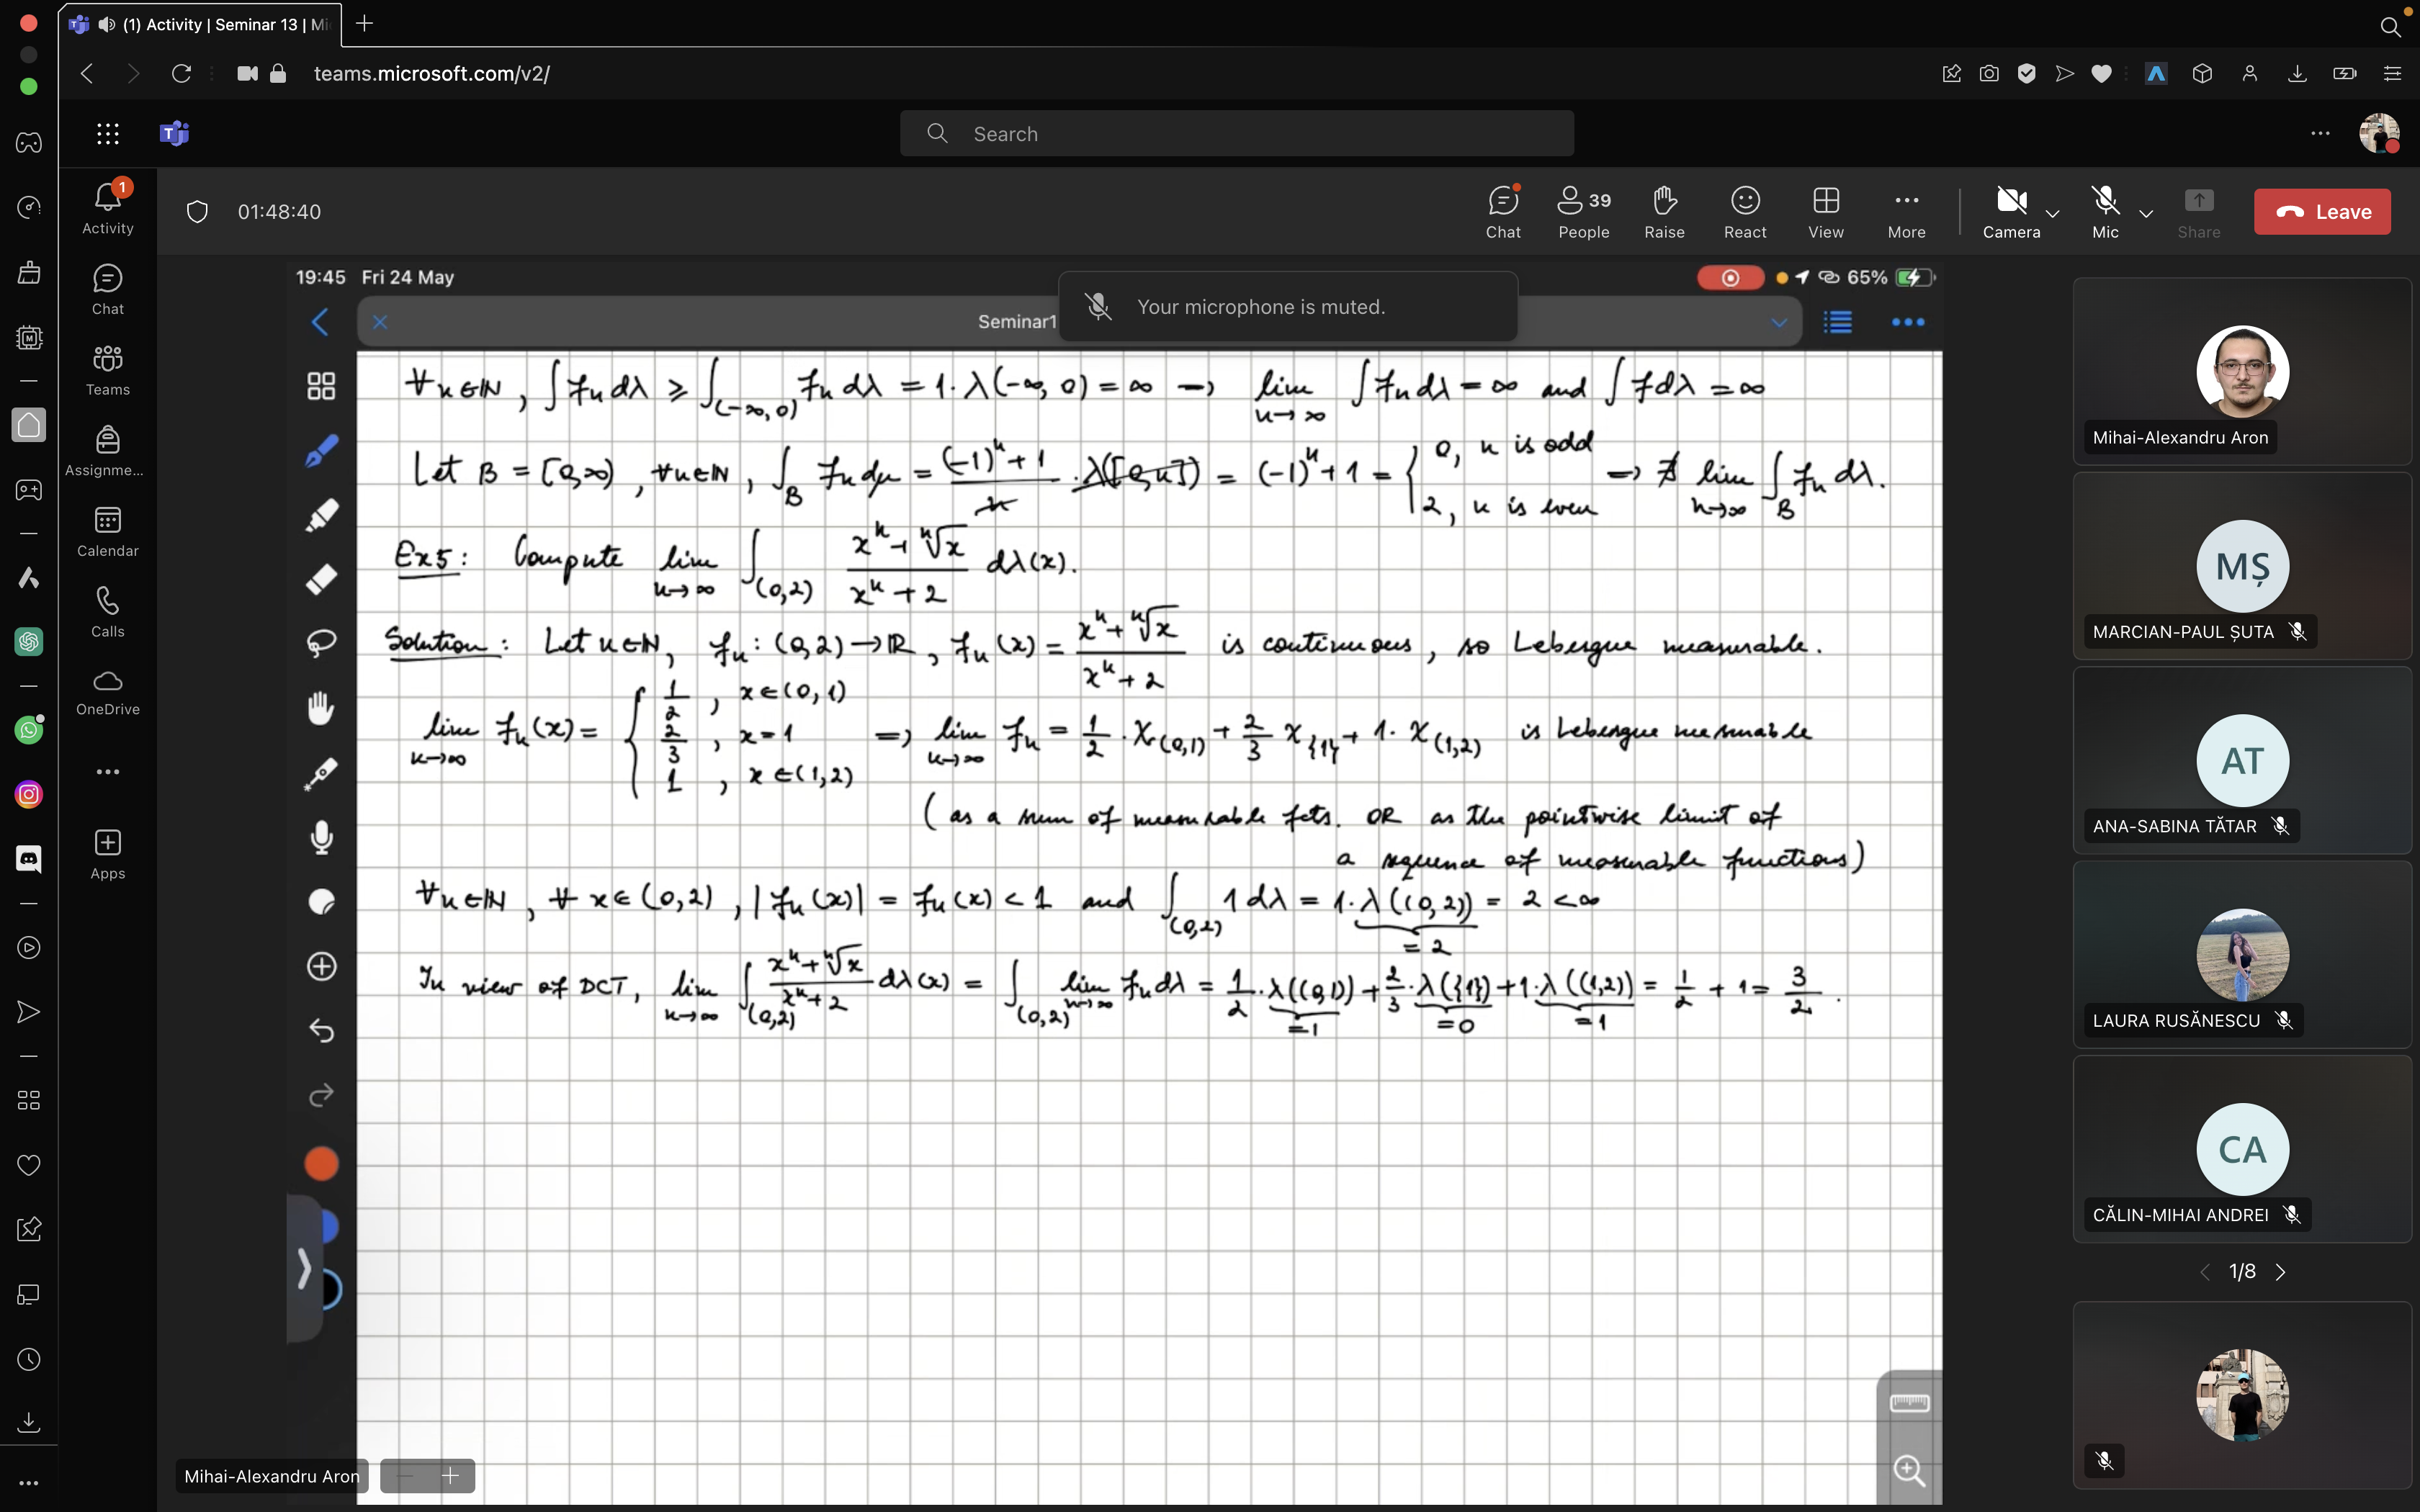 (1) Activity | Seminar 13 | Mi
teams.microsoft.com/v2/
Search
1
Activity
Chat
Teams
Assignme...
Calendar
Calls
OneDrive
Apps
01:48:40
Chat
39
People
Raise
React
View
More
Camera
Mic
Share
Leave
19:45 Fri 24 May
65%
Seminar1
Your microphone is muted.
∀n∈ℕ, ∫ fn dλ ≥ ∫(-∞,0) fn dλ = 1·λ(-∞,0) = ∞ → lim n→∞ ∫ fn dλ = ∞ and ∫ f dλ = ∞
Let B = [0,∞), ∀n∈ℕ, ∫B fn dμ = ((-1)^n + 1)/n · λ([0,n]) = (-1)^n + 1 = { 0, n is odd; 2, n is even ⇒ ∄ lim n→∞ ∫B fn dλ.
Ex5: Compute lim n→∞ ∫(0,2) (x^n + ⁿ√x)/(x^n + 2) dλ(x).
Solution: Let n∈ℕ, fn : (0,2) → ℝ, fn(x) = (x^n + ⁿ√x)/(x^n + 2) is continuous, so Lebesgue measurable.
lim n→∞ fn(x) = { 1/2, x∈(0,1); 2/3, x=1; 1, x∈(1,2) ⇒ lim n→∞ fn = 1/2 · χ(0,1) + 2/3 χ{1} + 1·χ(1,2) is Lebesgue measurable
(as a sum of measurable fcts. OR as the pointwise limit of
a sequence of measurable functions)
∀n∈ℕ, ∀ x∈(0,2), |fn(x)| = fn(x) < 1 and ∫(0,2) 1 dλ = 1·λ((0,2)) = 2 < ∞
= 2
In view of DCT, lim n→∞ ∫(0,2) (x^n + ⁿ√x)/(x^n + 2) dλ(x) = ∫(0,2) lim n→∞ fn dλ = 1/2 · λ((0,1)) + 2/3 · λ({1}) + 1·λ((1,2)) = 1/2 + 1 = 3/2.
=1 =0 =1
Mihai-Alexandru Aron
Mihai-Alexandru Aron
MȘ
MARCIAN-PAUL ȘUTA
AT
ANA-SABINA TĂTAR
LAURA RUSĂNESCU
CA
CĂLIN-MIHAI ANDREI
1/8